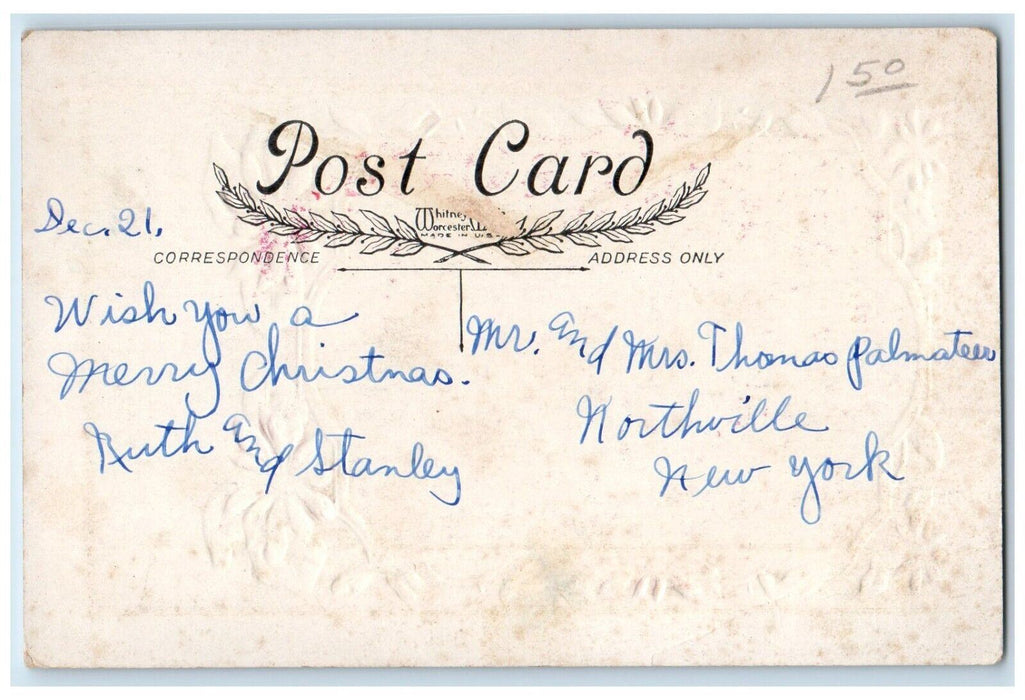 1 50
Post Card
Whitney
Worcester
MADE IN U.S.
CORRESPONDENCE
ADDRESS ONLY
Dec. 21.
Wish you a
Merry Christmas.
Ruth and Stanley
Mr. and Mrs. Thomas Palmateer
Northville
New York